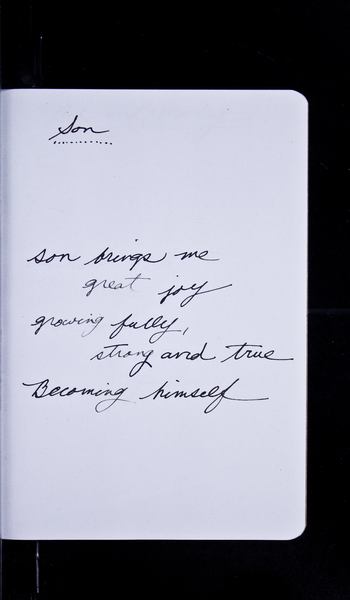 Son
son brings me
great joy
growing fully,
strong and true
Becoming himself